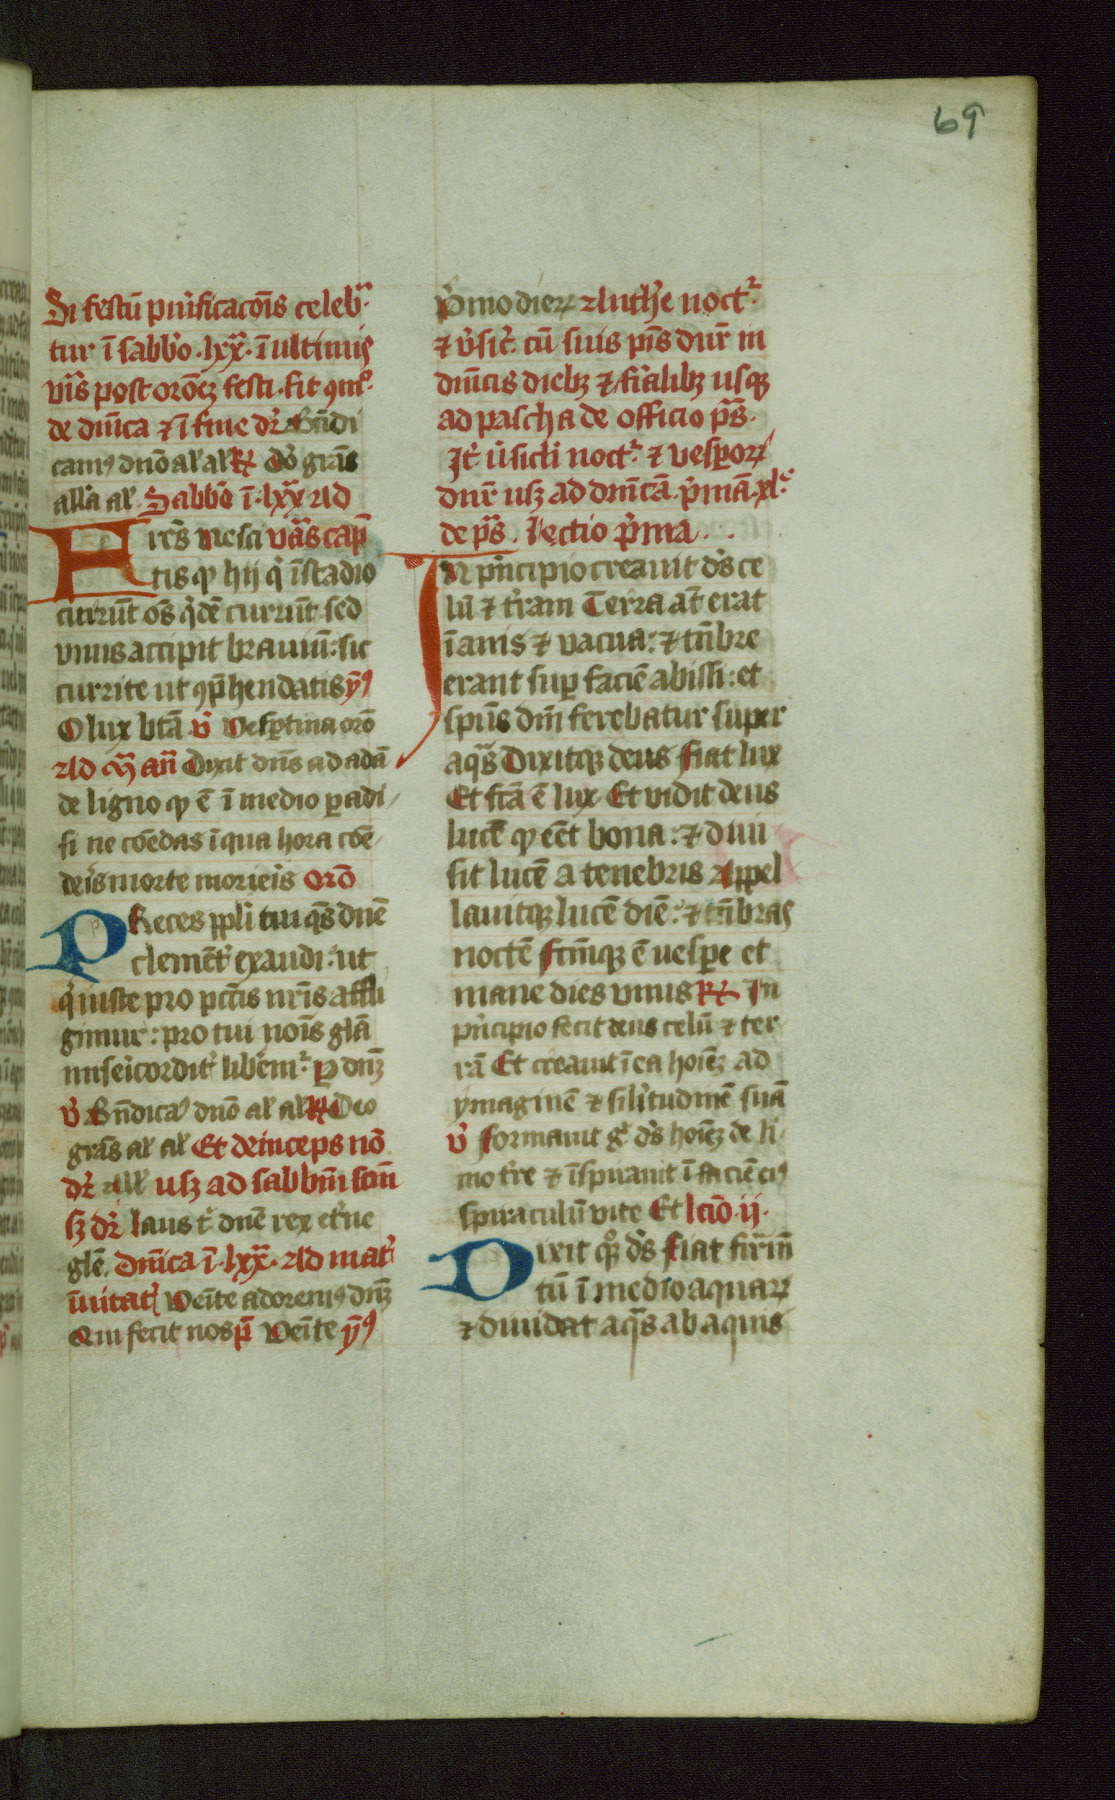 69
Si festū purificacōis celebᵃ
tur ī sabb̄o .lxx̄. ī ultimis
vīs post orōeꝫ festi . fit ꝯmᵉ.
de dnīca ⁊ ī fine dr̄ Bn̄di
camꝰ dnō al̄ al̄ R̄ Dō grās
allā al̄ Sabbō ī .lxx̄ Ad
Fr̄es nesci vās cap̄
tis ꝙ hij q̇ ī stadio
currūt oēs q̇dē currūt sed
vnus accipit brauiū : sic
currite ut ꝯp̄hendatis ȳꝰ
O lux btā v̄ Vesꝑtina orō
Ad m̄ an̄ Dixit dn̄s ad adā
de ligno ꝙ ē ī medio paradi
si ne cōedas ī qua hora cōe
deris morte morieris Orō
PReces ppl̄i tui q̄s dnē
clement̄ exaudi . ut
q̇ iuste pro pctīs nrīs affli
gimur : pro tui nōis glā
misericordit̄ liberem̄ꝰ P dnꝫ
v̄ Bn̄dicaꝰ dnō al̄ al̄ R̄ Deo
grās al̄ al̄ Et deinceps nō
dr̄ all̄ usꝫ ad sabbm̄ sctm̄
sꝫ dr̄ laus t̄ dnē rex et̄ne
glē. Dnīca ī .lxx̄. Ad mat̄
īuitat̄ Venīte adoremꝰ dnꝫ
Qui fecit nos p̄ Venīte ȳꝰ
P̄mo dieꝝ Antħe noct̄
⁊ v̄sic̄. cū suis p̄s dnr̄ in
dnīcis diebꝫ ⁊ fīalibꝫ usqꝫ
ad pascha de officio p̄s.
It̄ v̄sicli noct̄ ⁊ vesꝑoꝝ
dnr̄ usꝫ ad dnīcā p̄mā .xl̄.
de p̄s . Lectio p̄ma . .
IN p̄ncipio creauit dēs ce
lū ⁊ t̄ram Terra at̄ erat
īanis ⁊ vacua : ⁊ tn̄bre
erant suꝑ faciē abissi : et
spūs dn̄i ferebatur super
aq̄s Dixitqꝫ deus fiat lux
Et fctā ē lux Et vidit deus
lucē ꝙ eēt bona : ⁊ diui
sit lucē a tenebris Appel
lauitqꝫ lucē diē : ⁊ tn̄bras
noctē fctm̄qꝫ ē vespe et
mane dies vnus R̄ In
p̄ncipio fecit deus celū ⁊ ter
rā Et creauit ī ea hoīeꝫ ad
ymaginē ⁊ sil̄itudinē suā
v̄ Formauit gͦ dēs hoīeꝫ de li
mo t̄re ⁊ īspirauit ī faciē eiꝰ
spiraculū vite Et lctiō .ij.
Dixit qͦꝫ dēs fiat firm̄
tū ī medio aquaꝝ
⁊ diuidat aq̄s ab aquis